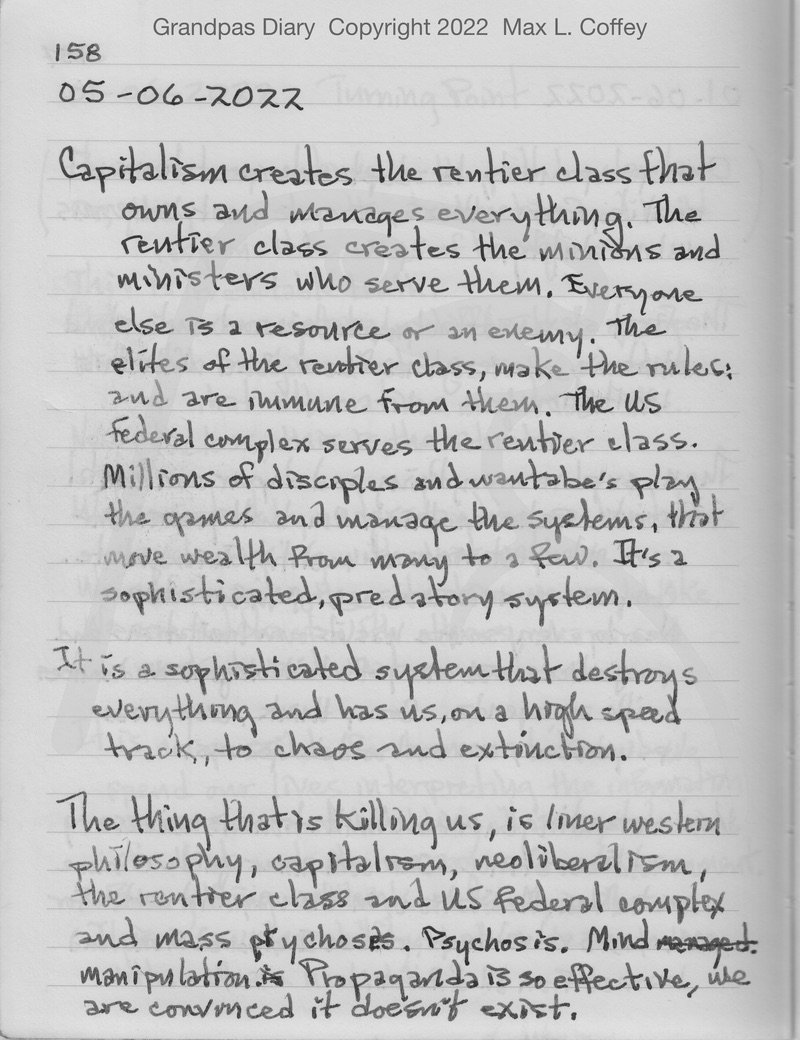 Grandpas Diary Copyright 2022 Max L. Coffey
158
05-06-2022
Capitalism creates the rentier class that
owns and manages everything. The
rentier class creates the minions and
ministers who serve them. Everyone
else is a resource or an enemy. The
elites of the rentier class, make the rules;
and are immune from them. The US
federal complex serves the rentier class.
Millions of disciples and wantabe's play
the games and manage the systems, that
move wealth from many to a few. It's a
sophisticated, predatory system.
It is a sophisticated system that destroys
everything and has us, on a high speed
track, to chaos and extinction.
The thing that is killing us, is liner western
philosophy, capitalism, neoliberalism,
the rentier class and US federal complex
and mass ptychoses. Psychosis. Mind managed.
manipulation. is Propaganda is so effective, we
are convinced it doesn't exist.